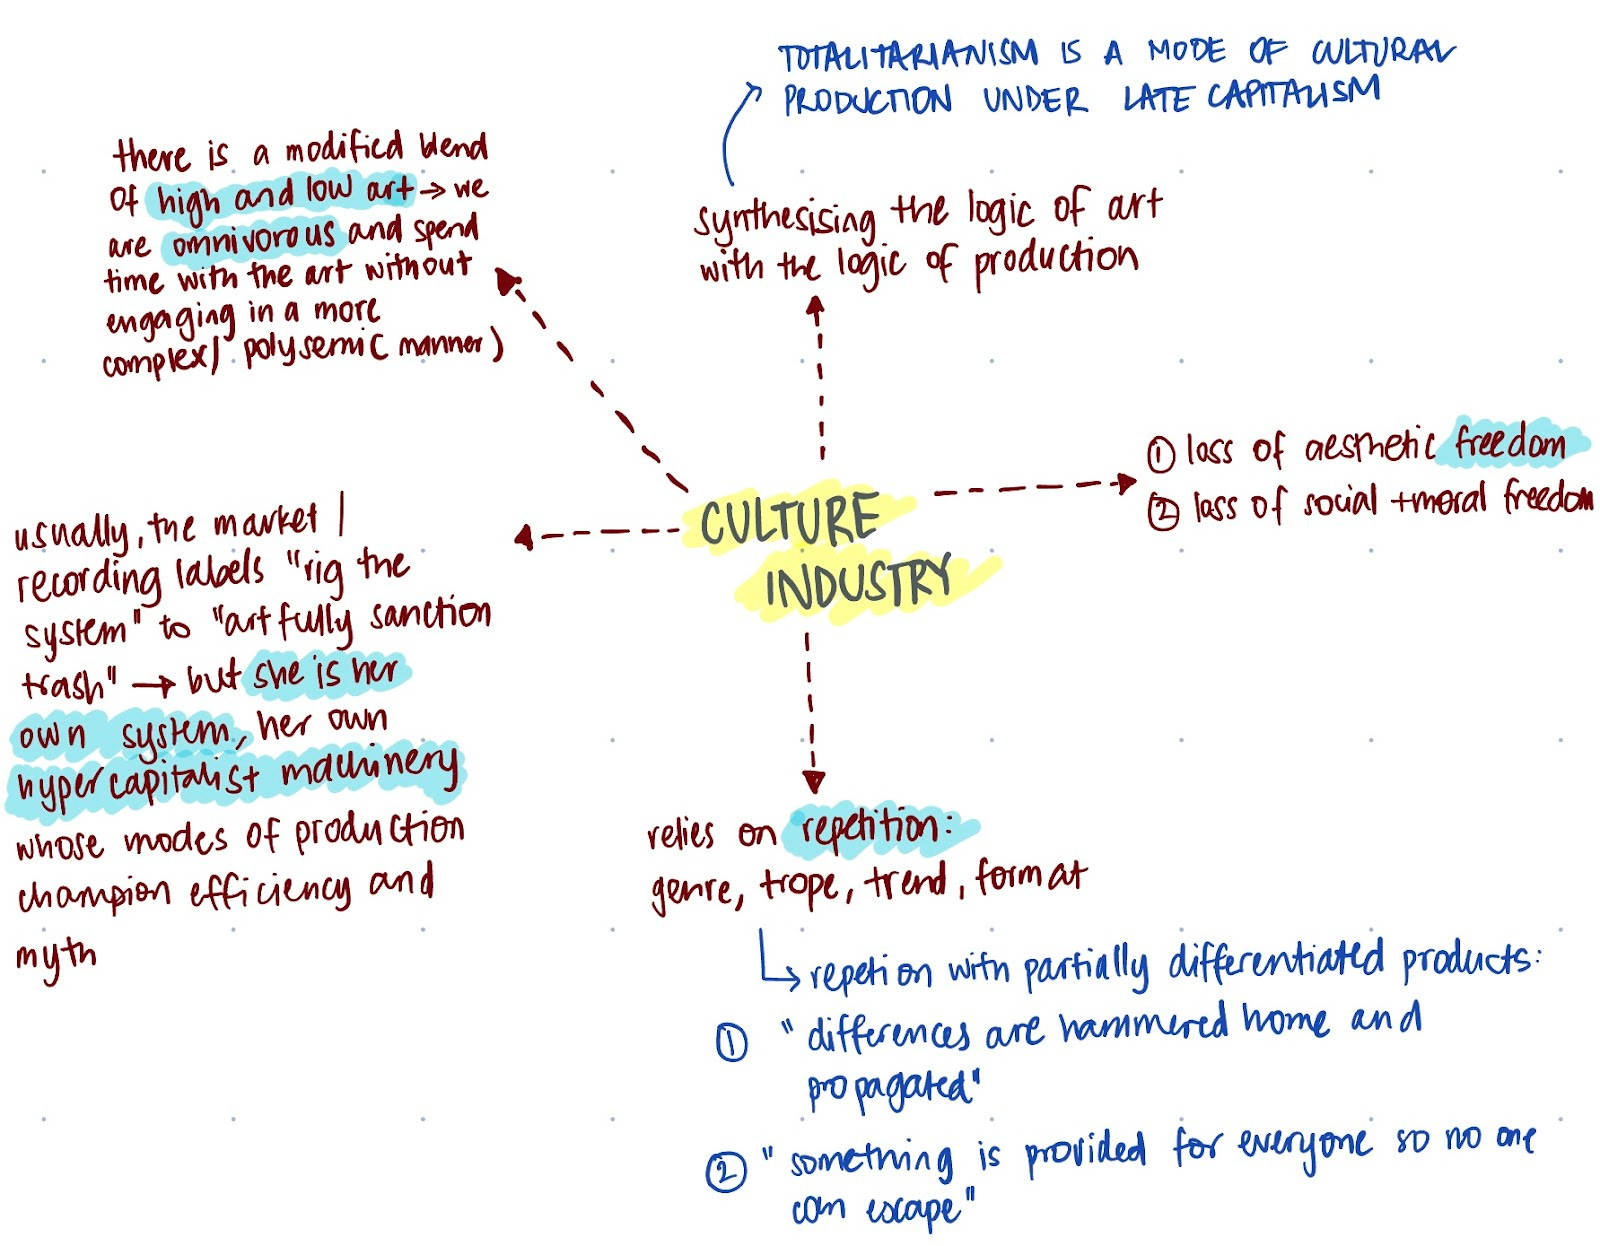 TOTALITARIANISM IS A MODE OF CULTURAL
PRODUCTION UNDER LATE CAPITALISM
there is a modified blend
of high and low art → we
are omnivorous and spend
time with the art without
engaging in a more
complex/ polysemic manner)
synthesising the logic of art
with the logic of production
① loss of aesthetic freedom
② loss of social + moral freedom
CULTURE
INDUSTRY
usually, the market /
recording labels "rig the
system" to "artfully sanction
trash" → but she is her
own system, her own
hypercapitalist machinery
whose modes of production
champion efficiency and
myth
relies on repetition:
genre, trope, trend, format
↳ repetion with partially differentiated products:
① "differences are hammered home and
propagated"
② "something is provided for everyone so no one
can escape"